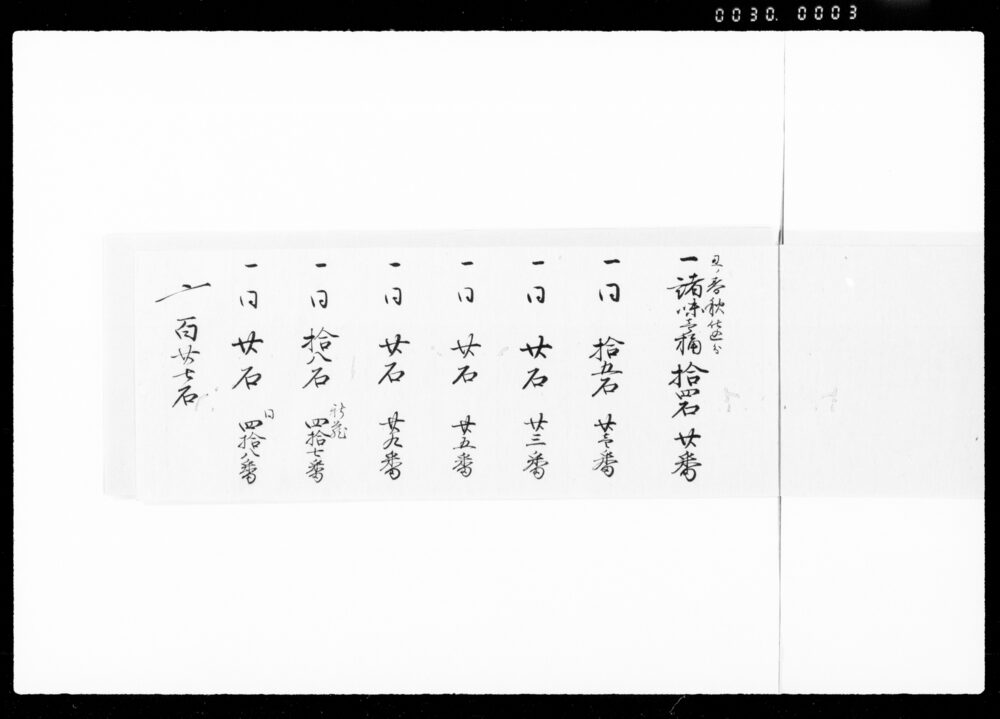 0030. 0003
丑ノ春秋仕込分
一諸味壱桶 拾四石 廿番
一同 拾五石 廿壱番
一同 廿石 廿三番
一同 廿石 廿五番
一同 廿石 廿九番
一同 拾八石 新蔵 四拾七番
一同 廿石 同 四拾八番
〆 百廿七石